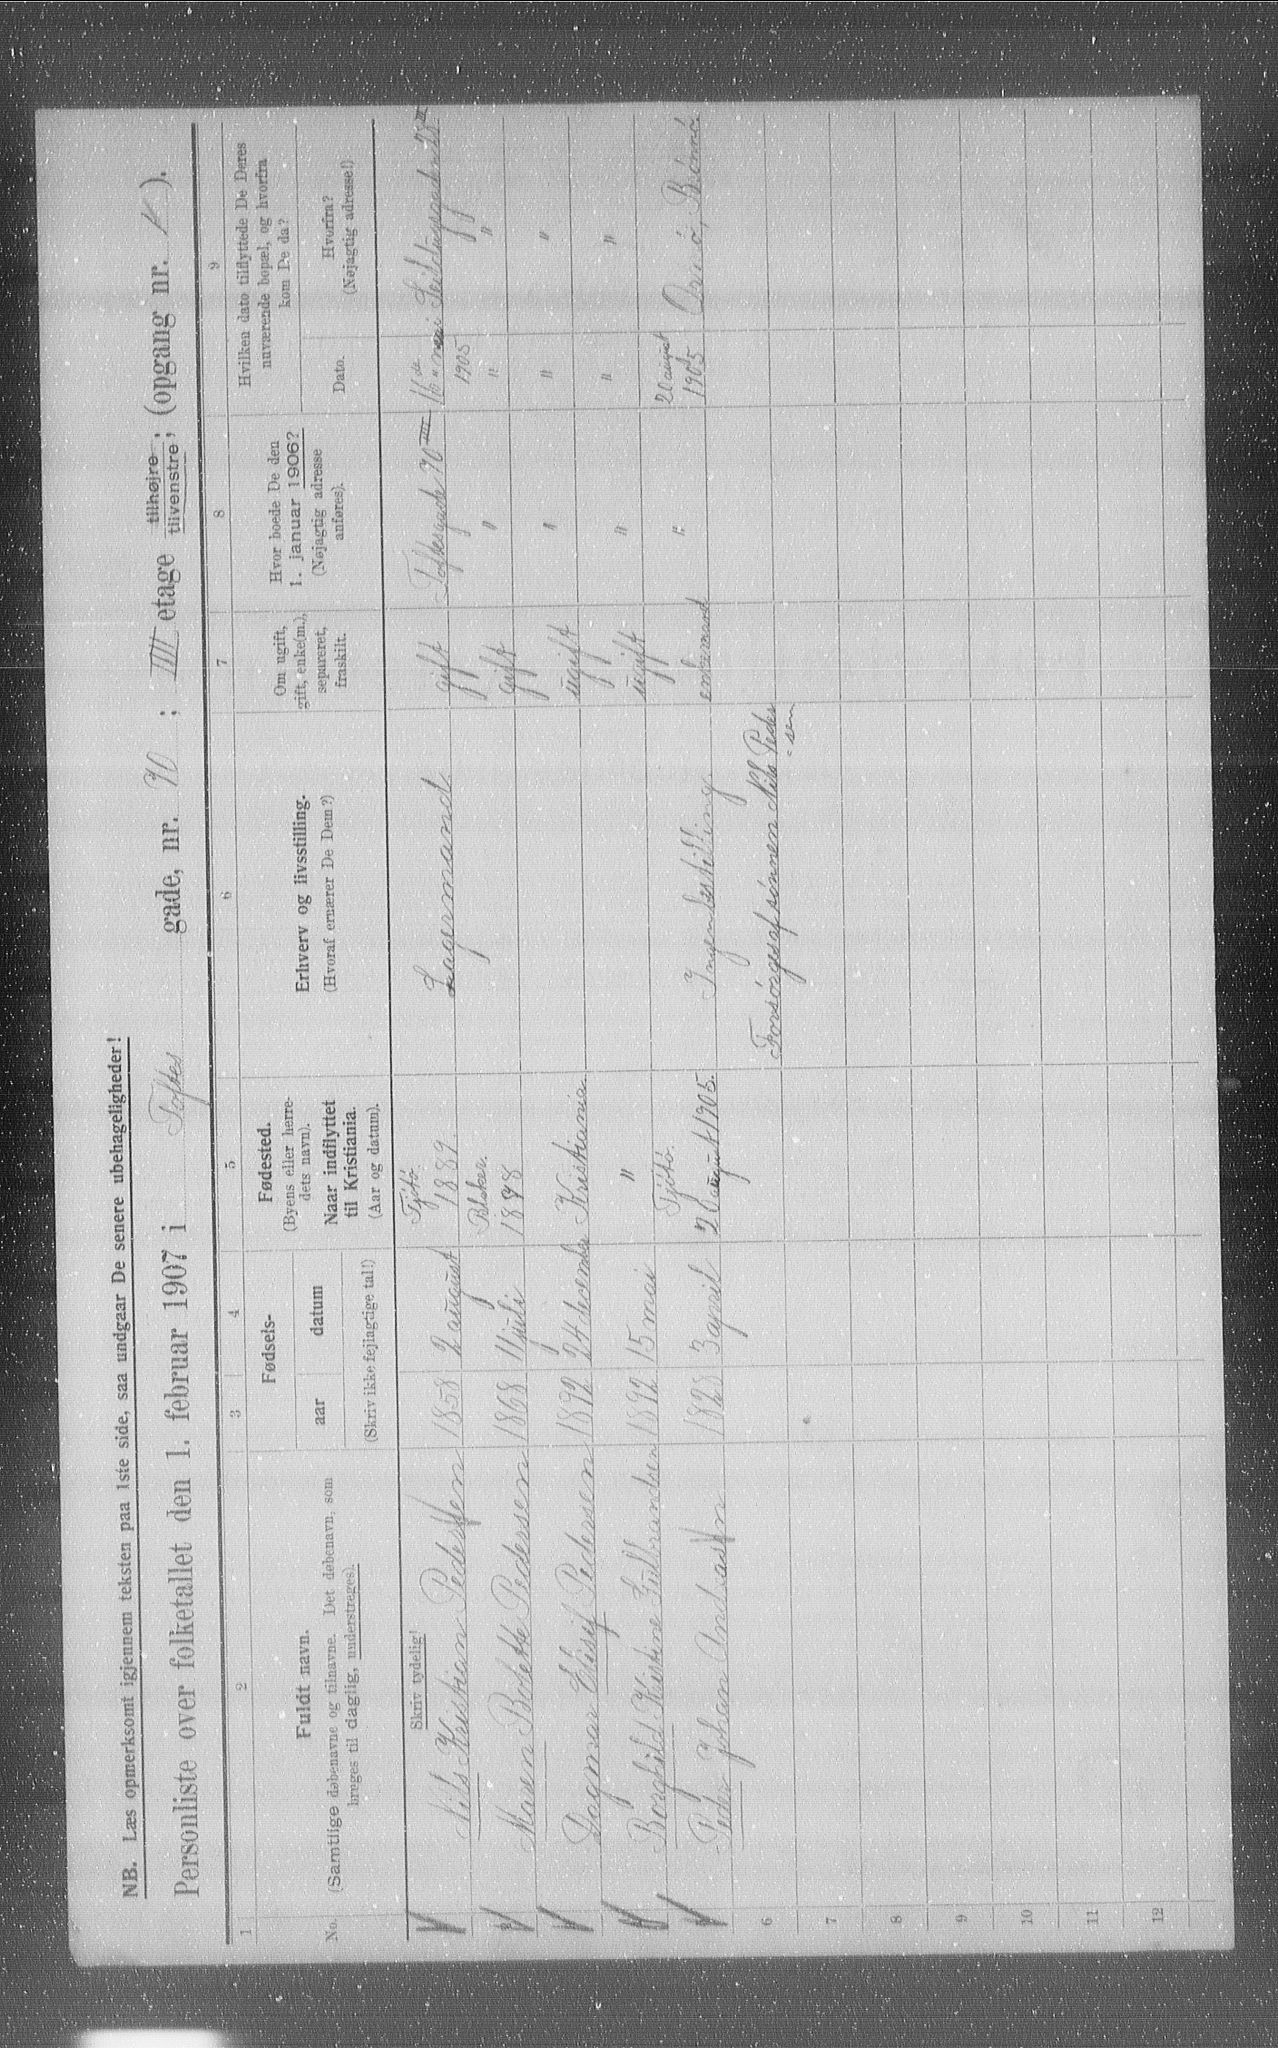 NB. Læs opmerksomt igjennem teksten paa 1ste side, saa undgaar De senere ubehageligheder!
Personliste over folketallet den 1. februar 1907 i Toftes gade, nr. 70 ; IIII etage tilhøjre; tilvenstre; (opgang nr. ).
1 2 3 4 5 6 7 8 9
No.
Fuldt navn.
(Samtlige døbenavne og tilnavne. Det døbenavn, som
bruges til daglig, understreges).
Fødsels-
aar datum
(Skriv ikke fejlagtige tal!)
Fødested.
(Byens eller herre-
dets navn).
Naar indflyttet
til Kristiania.
(Aar og datum).
Erhverv og livsstilling.
(Hvoraf ernærer De Dem?)
Om ugift,
gift, enke(m.),
separeret,
fraskilt.
Hvor boede De den
1. januar 1906?
(Nøjagtig adresse
anføres).
Hvilken dato tilflyttede De Deres
nuværende bopæl, og hvorfra
kom De da?
Dato.
Hvorfra?
(Nøjagtig adresse!)
Skriv tydelig!
Nils Kristian Pedersen 1858 2 august Tjøtø. 1889. Lagermand gift Toftesgade 70 III 16de mai 1905 Seildugsgaden 28 III
Maren Bolette Pedersen 1868 11 juli Blaker. 1898 gift " " "
Dagmar Elisif Pedersen 1892 24 december Kristiania. ugift " " "
Borghild Kistine Gulbrandsen 1892 15 mai " ugift " " "
Peder Johan Andreassen 1828 3 april Tjøtø. 20 august 1905. Ingen bestilling enkemand " 20 august 1905 Brønnø.
Forsørges af sønnen Nils Peder
- sen
6
7
8
9
10
11
12